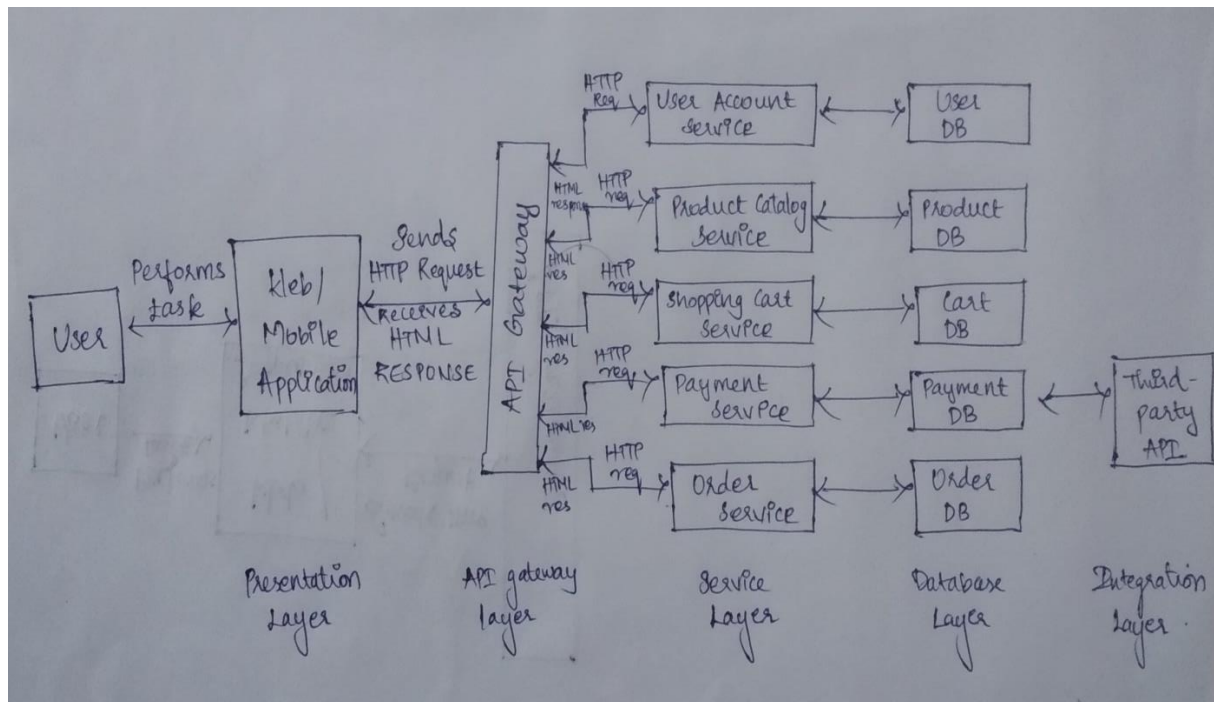 User
Performs
task
Web/
Mobile
Application
Sends
HTTP Request
Receives
HTML
RESPONSE
API Gateway
HTTP
Req
HTML
respns
User Account
Service
User
DB
HTTP
req
HTML
res
Product Catalog
Service
Product
DB
HTTP
req
HTML
res
Shopping Cart
Service
Cart
DB
HTTP
req
HTML res
Payment
Service
Payment
DB
Third-
party
API
HTTP
req
HTML
res
Order
Service
Order
DB
Presentation
Layer
API gateway
layer
Service
Layer
Database
Layer
Integration
Layer.